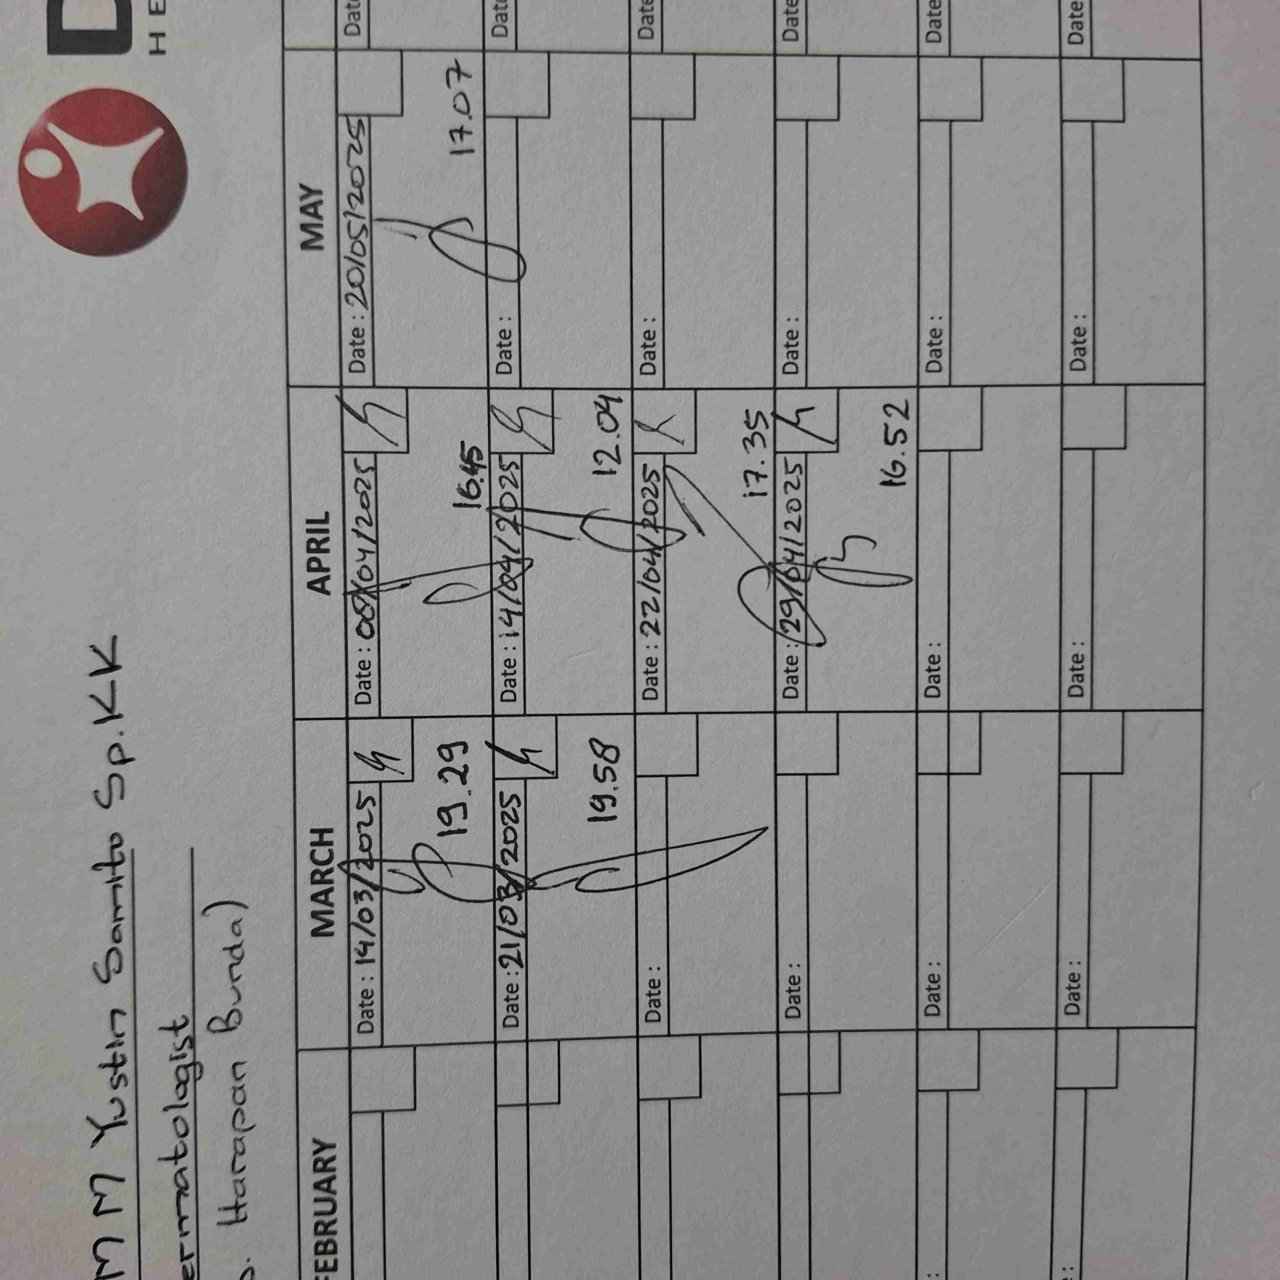 M M Yustin Samito Sp.KK
ermatologist
Harapan Bunda)
D
HE
FEBRUARY MARCH APRIL MAY
Date : 14/03/2025 Date : 08/04/2025 Date : 20/05/2025 Date
19.29 16.45 17.07
Date : 21/03/2025 Date : 14/04/2025 Date : Date
19.58 12.04
Date : Date : 22/04/2025 Date : Date
17.35
Date : Date : 29/04/2025 Date : Date
16.52
: Date : Date : Date : Date
: Date : Date : Date : Date